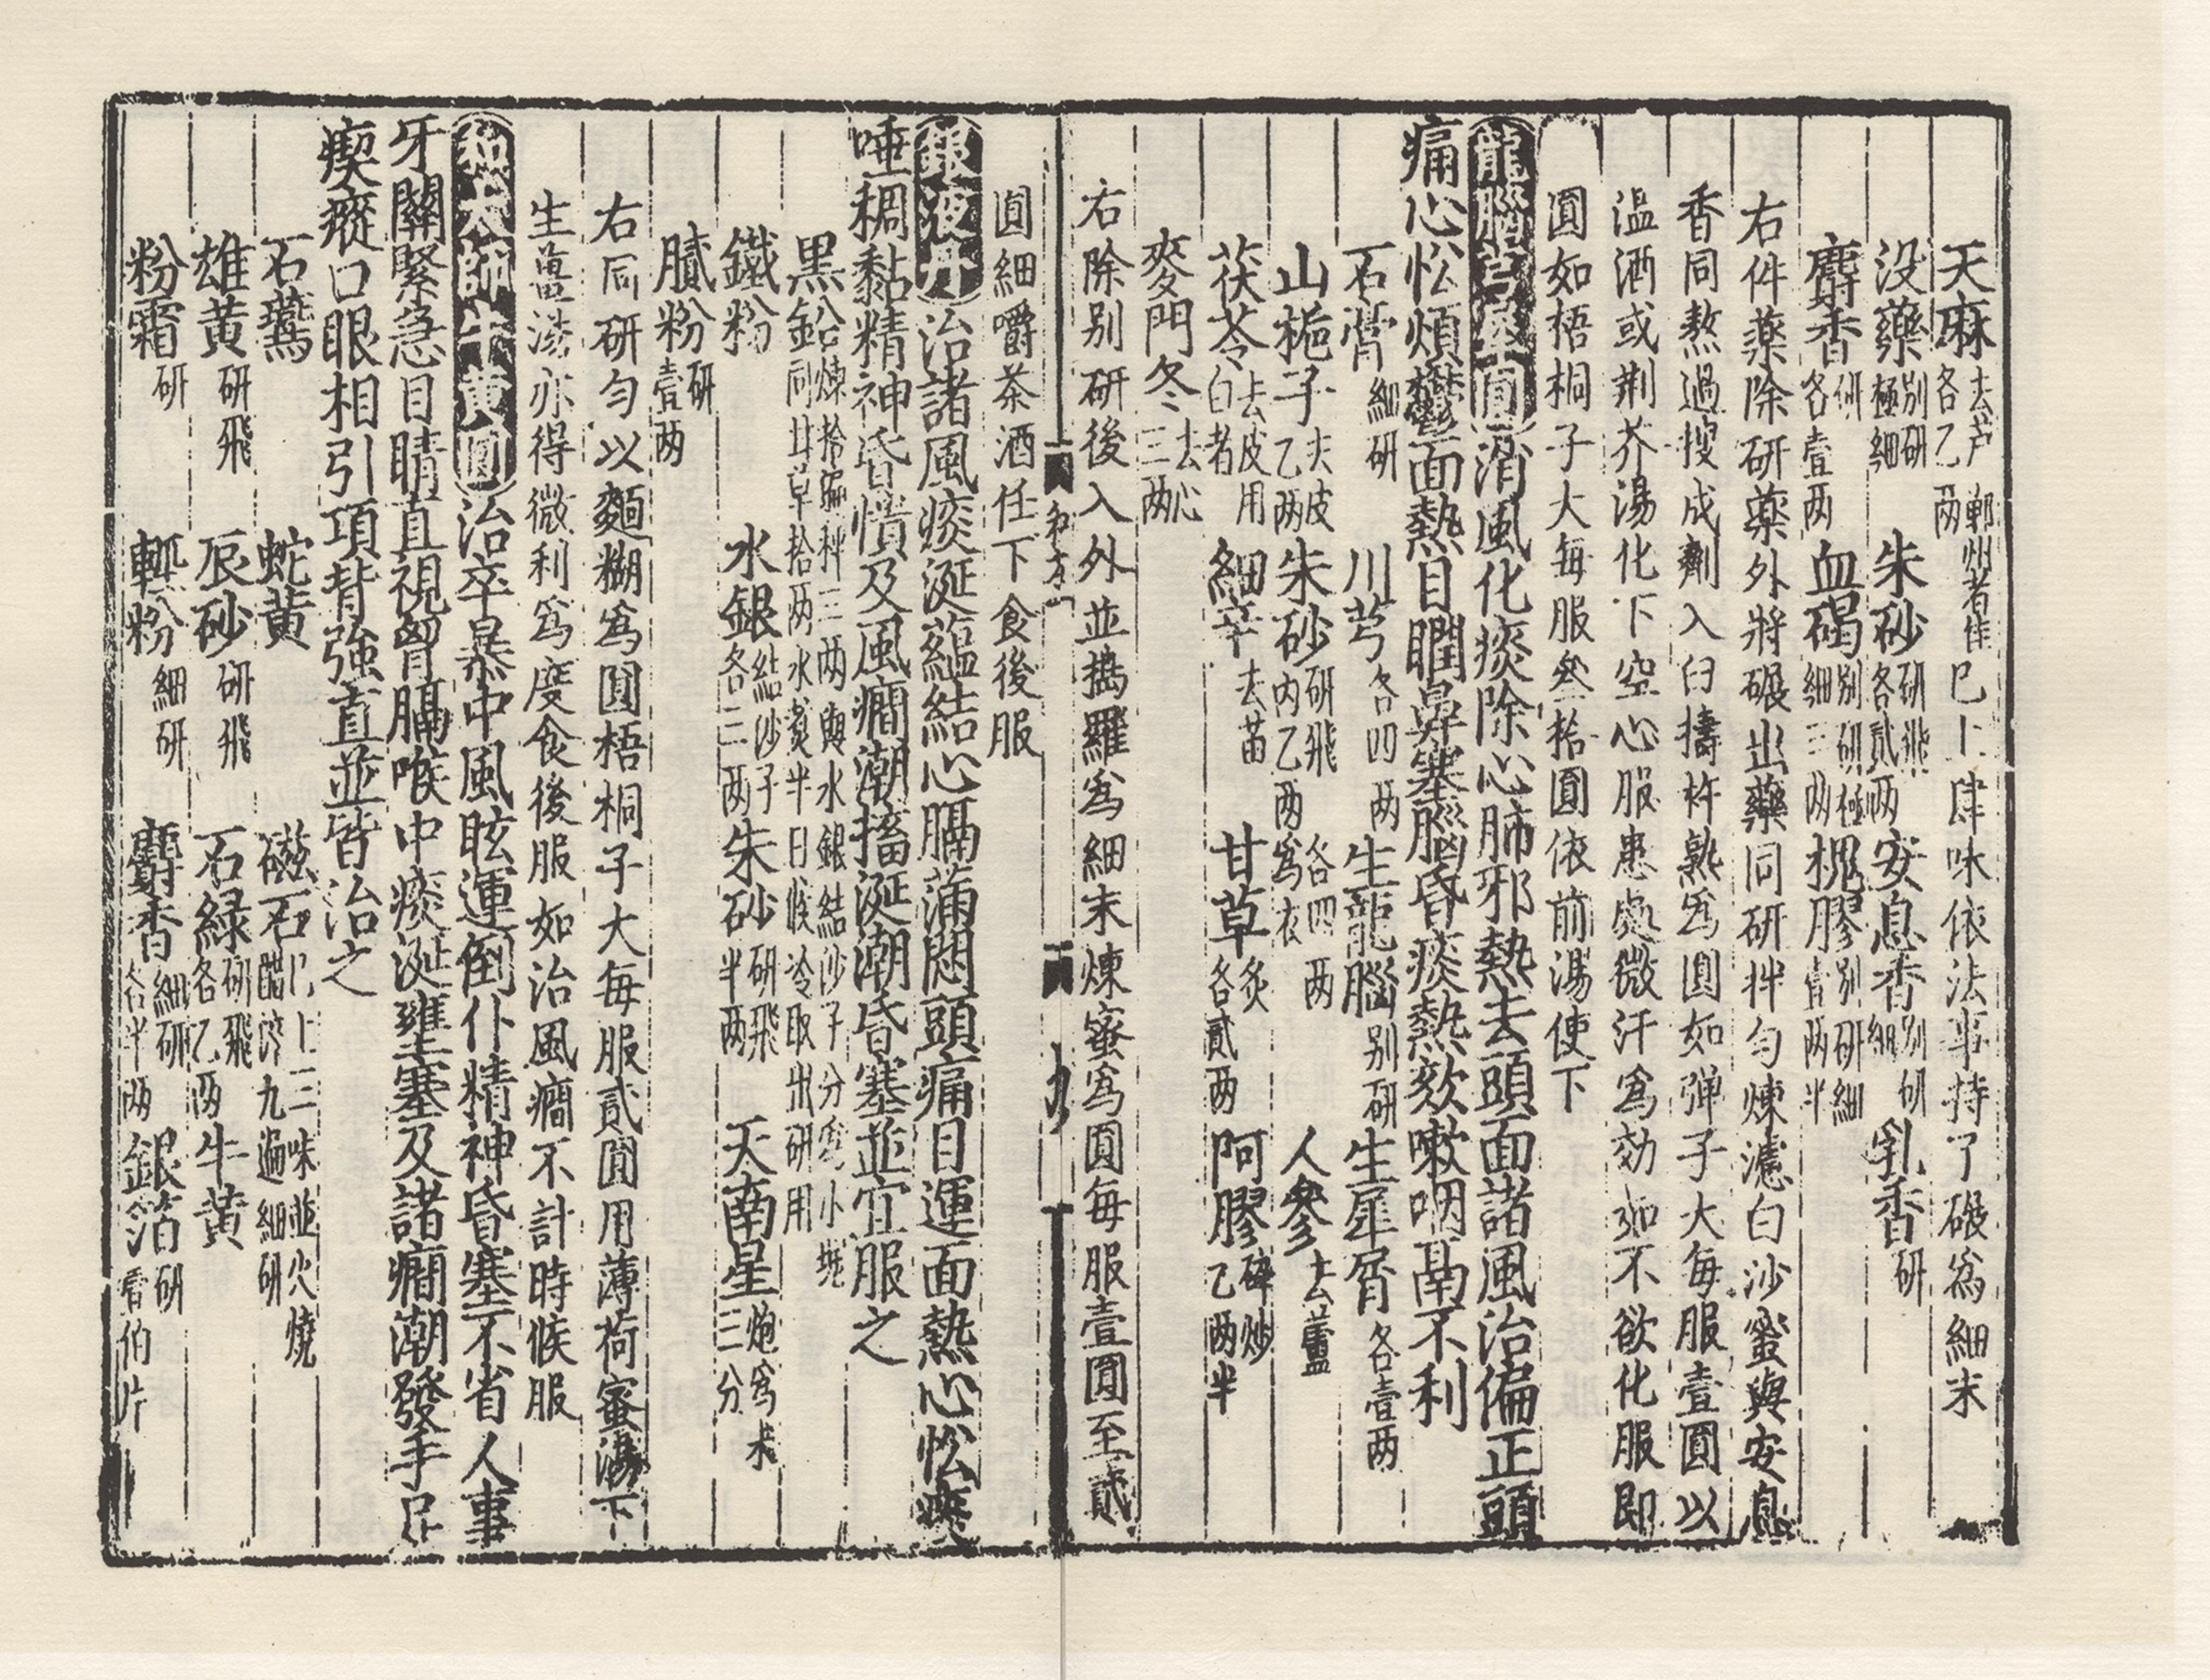 天麻去芦各乙两郸州者佳巳上肆味依法事持了碾爲細末
没藥别研極細 朱砂研飛各貳两 安息香别研細 乳香研
麝香研各壹两 血碣别研研極細三两 槐膠别研細壹两半
右件藥除研藥外將碾出藥同研拌匀煉濾白沙蜜與安息
香同熬過搜成劑入臼擣杵熟爲圓如弹子大每服壹圓以
温酒或荆芥湯化下空心服患處微汗爲効如不欲化服即
圓如梧桐子大每服叁拾圓依前湯使下
龍腦芎犀圓消風化痰除心肺邪熱去頭面諸風治偏正頭
痛心忪煩鬱面熱目瞤鼻塞腦昏痰熱欬嗽咽鬲不利
石膏細研 川芎各四两 生龍腦别研 生犀屑各壹两
山梔子去皮乙两 朱砂研飛四两内乙两爲衣 人參去蘆各四两
茯苓去皮用白者 細辛去苗 甘草炙各貳两 阿膠碎炒乙两半
麥門冬去心三两
右除别研後入外並擣羅爲細末煉蜜爲圓每服壹圓至貳
局方一
九
圓細嚼茶酒任下食後服
銀液丹治諸風痰涎藴結心膈滿悶頭痛目運面熱心忪痰
唾稠黏精神昏憒及風癎潮搐涎潮昏塞並宜服之
黑鉛煉拾遍秤三两與水銀結沙子分爲小塊同甘草拾两水煑半日候冷取出研用
鐵粉 水銀結沙子各三两 朱砂研飛半两 天南星炮爲末三分
膩粉研壹两
右同研匀以麵糊爲圓梧桐子大每服貳圓用薄荷蜜湯下
生薑湯亦得微利爲度食後服如治風癎不計時候服
和太師牛黄圓治卒暴中風眩運倒仆精神昏塞不省人事
牙關緊急目睛直視胷膈喉中痰涎壅塞及諸癎潮發手足
瘈瘲口眼相引項背強直並皆治之
石鷰 蛇黄 磁石巳上三味並火燒醋淬九遍細研
雄黄研飛 辰砂研飛 石緑研飛各乙两 牛黄
粉霜研 輕粉細研 麝香細研各半两 銀箔研壹伯片